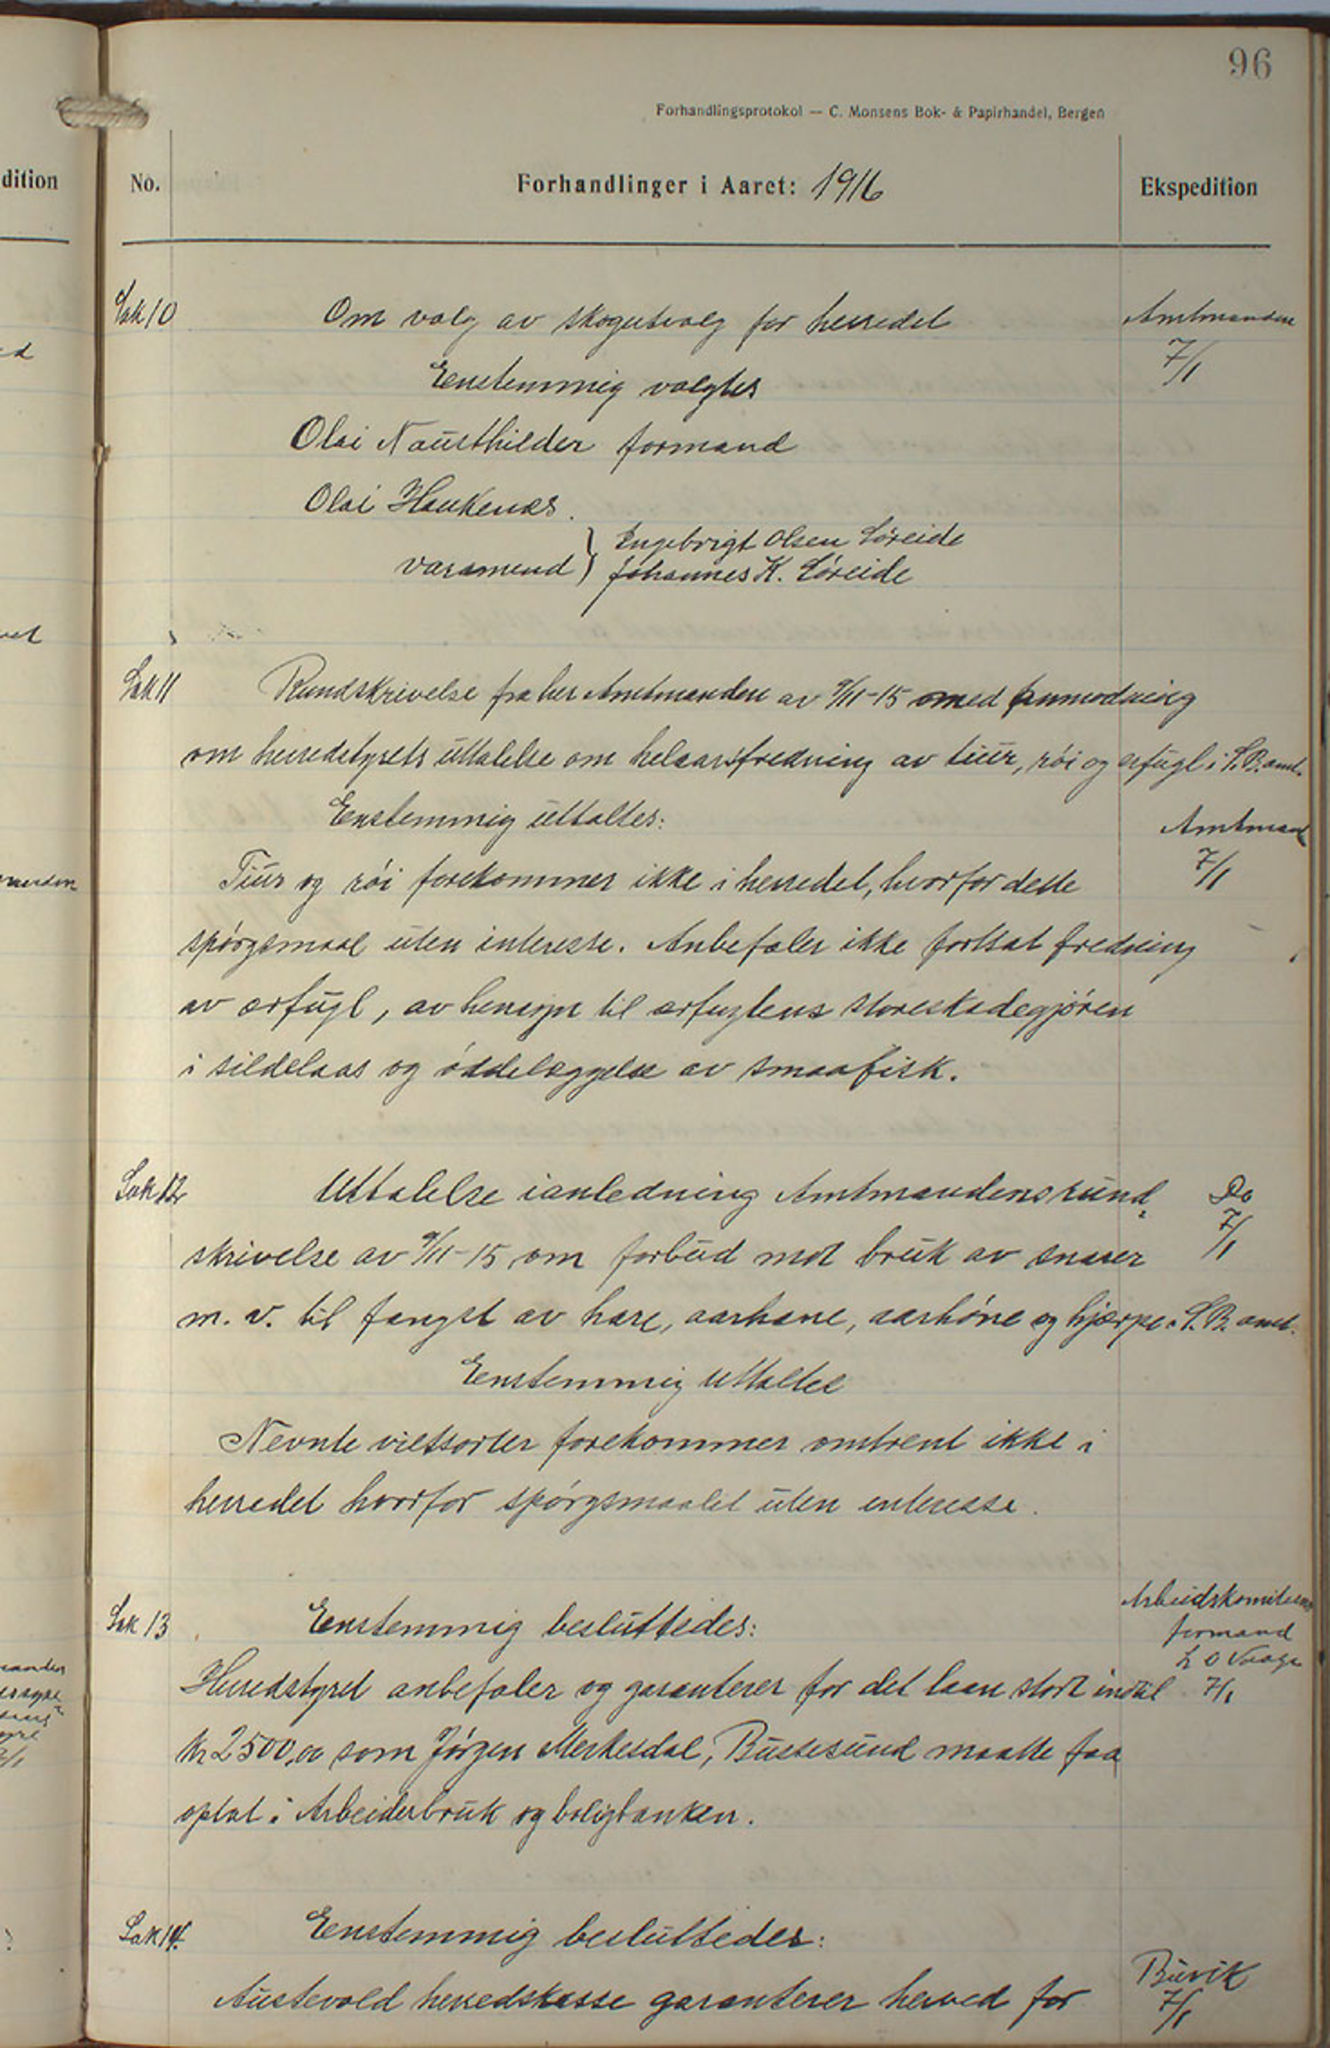 96
Forhandlingsprotokol — C. Monsens Bok- & Papirhandel, Bergen
dition
No.
Forhandlinger i Aaret: 1916
Ekspedition
Sak 10
Om valg av skogutvalg for herredet
Amtmanden
7/1
Eenstemmig valgtes
Olai Nausthilder formand
Olai Haukenæs.
varamend } Engebrigt Olsen Søreide
Johannes K. Søreide
Sak 11
Rundskrivelse fra her Amtmanden av 9/11-15 med anmodning
om herredstyrets uttalelse om helaarsfredning av tiur, röi og ærfugl i S. B. amt.
Enstemmig uttaltes:
Amtmand
7/1
Tiur og röi forekommer ikke i herredet, hvorfor dette
spörgsmaal uten interesse. Anbefaler ikke fortsat fredning
av ærfugl, av hensyn til ærfuglens store skadegjören
i sildelaas og öddelæggelse av smaafisk.
Sak 12
Uttalelse i anledning Amtmandens rund-
Do
7/1
skrivelse av 9/11-15 om forbud mot bruk av snarer
m. v. til fangst av hare, aarhane, aarhöne og hjærpe i S. B. amt.
Eenstemmig uttaltes
Nevnte vietsorter forekommer omtrent ikke i
herredet hvorfor spörgsmaalet uten interesse.
Sak 13
Eenstemmig besluttedes:
Arbeidskomiteens
formand
7/1
Herredstyret anbefaler og garanterer for det laan stort indtil
kr 2500,00 som Jörgen Merkesdal, Bussesund maatte faa
optat i Arbeiderbruk og boligbanken.
Sak 14.
Eenstemmig besluttedes:
Austevold herredskasse garanterer herved for
Buvik
7/1